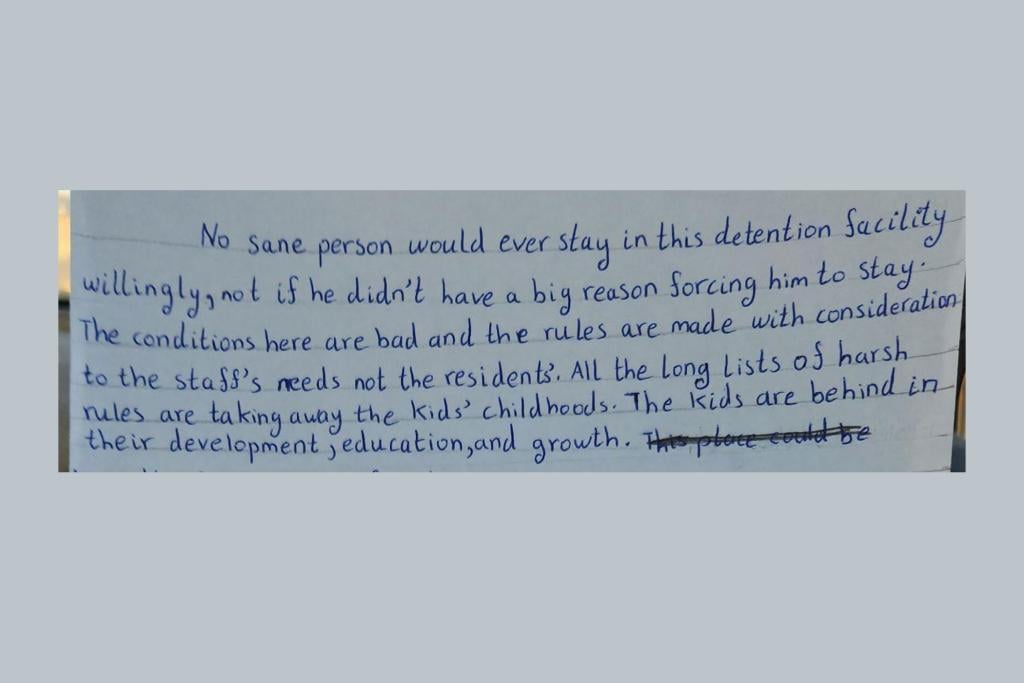 No sane person would ever stay in this detention facility
willingly, not if he didn't have a big reason forcing him to stay.
The conditions here are bad and the rules are made with consideration
to the staff's needs not the residents'. All the long lists of harsh
rules are taking away the kids' childhoods. The kids are behind in
their development, education, and growth. This place could be